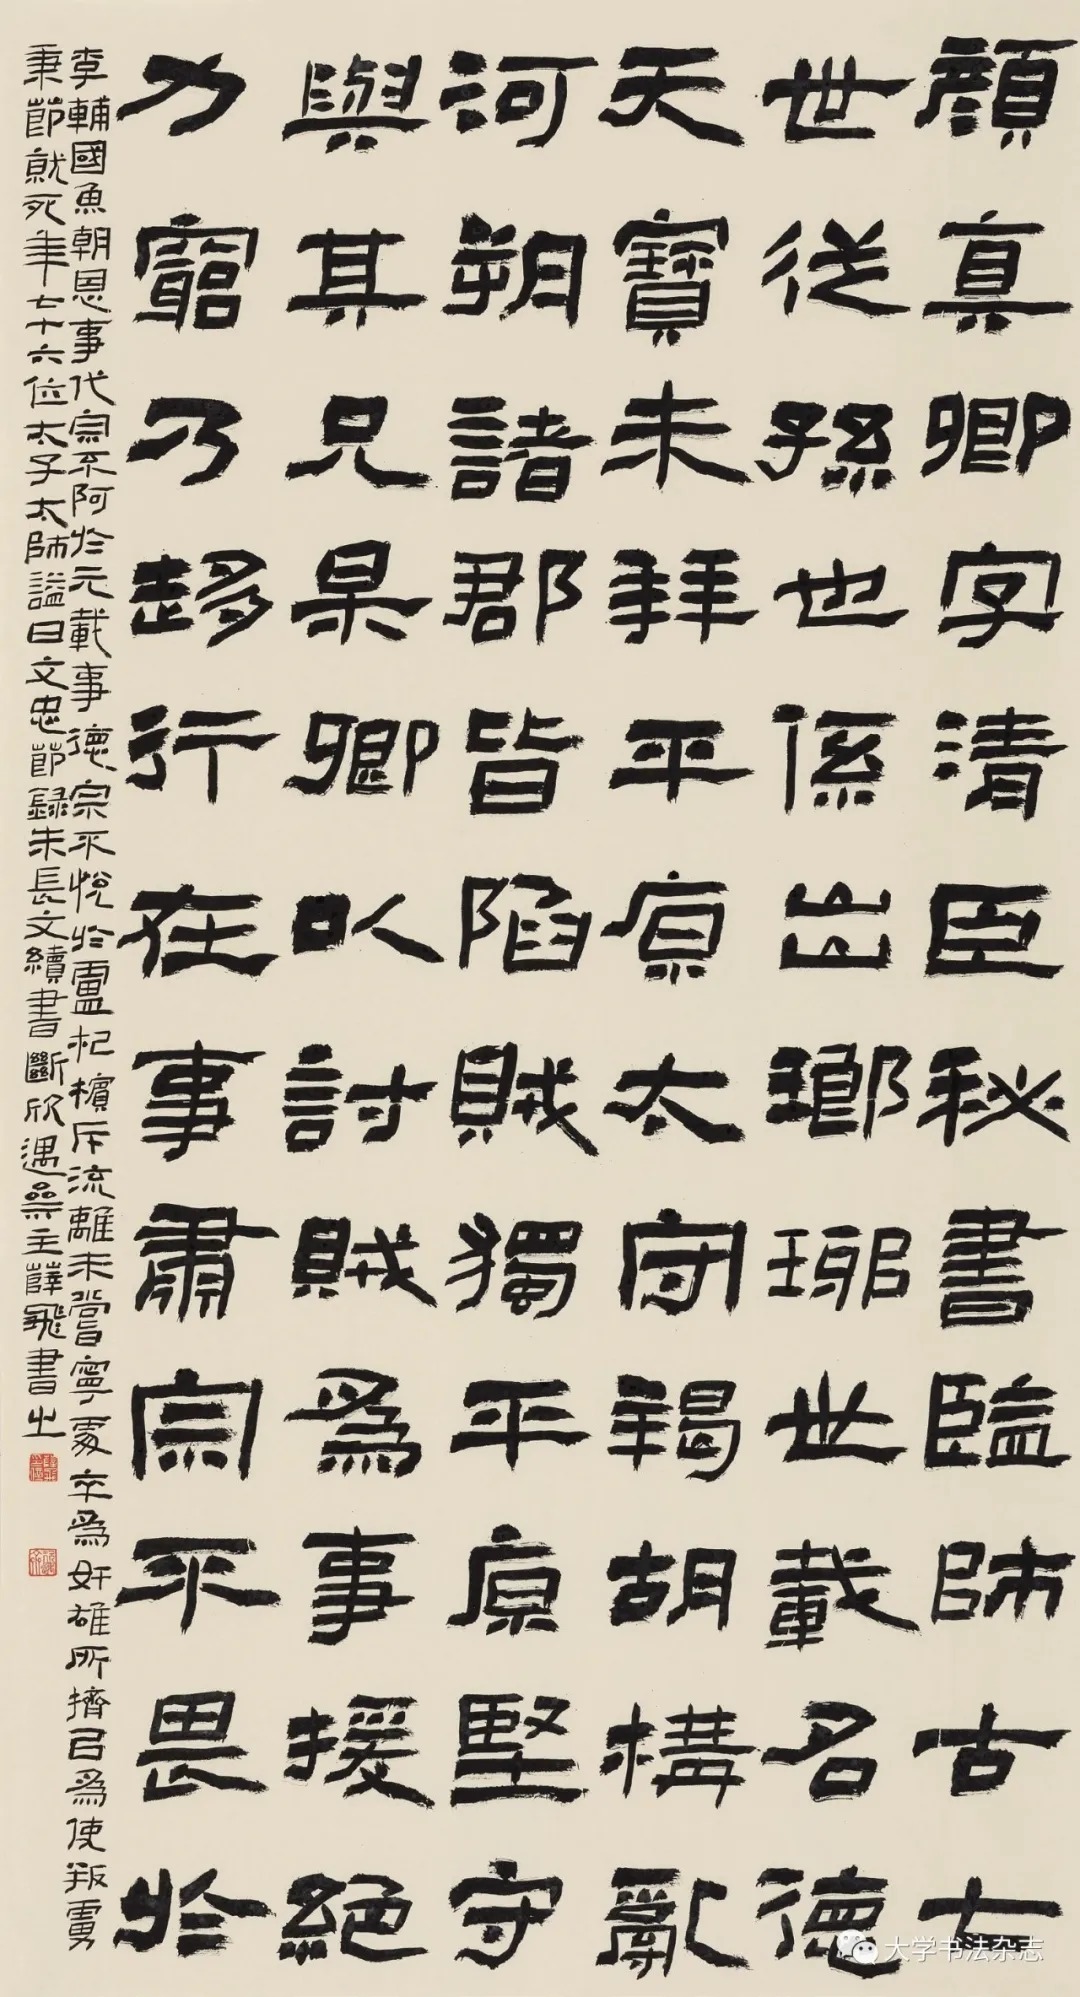 顏真卿字清臣秘書監師古七
世從孫也係出瑯琊世載名德
天寶末拜平原太守羯胡構亂
河朔諸郡皆陷賊獨平原堅守
與其兄杲卿以討賊為事援絕
力窮乃趍行在事肅宗不畏於
李輔國魚朝恩事代宗不阿於元載事德宗不悅於盧杞擯斥流離未嘗寧處卒為奸雄所擠以為使叛虜
秉節就死年七十六位太子太師謚曰文忠節錄朱長文續書斷欣遇齋主薛飛書之
大学书法杂志